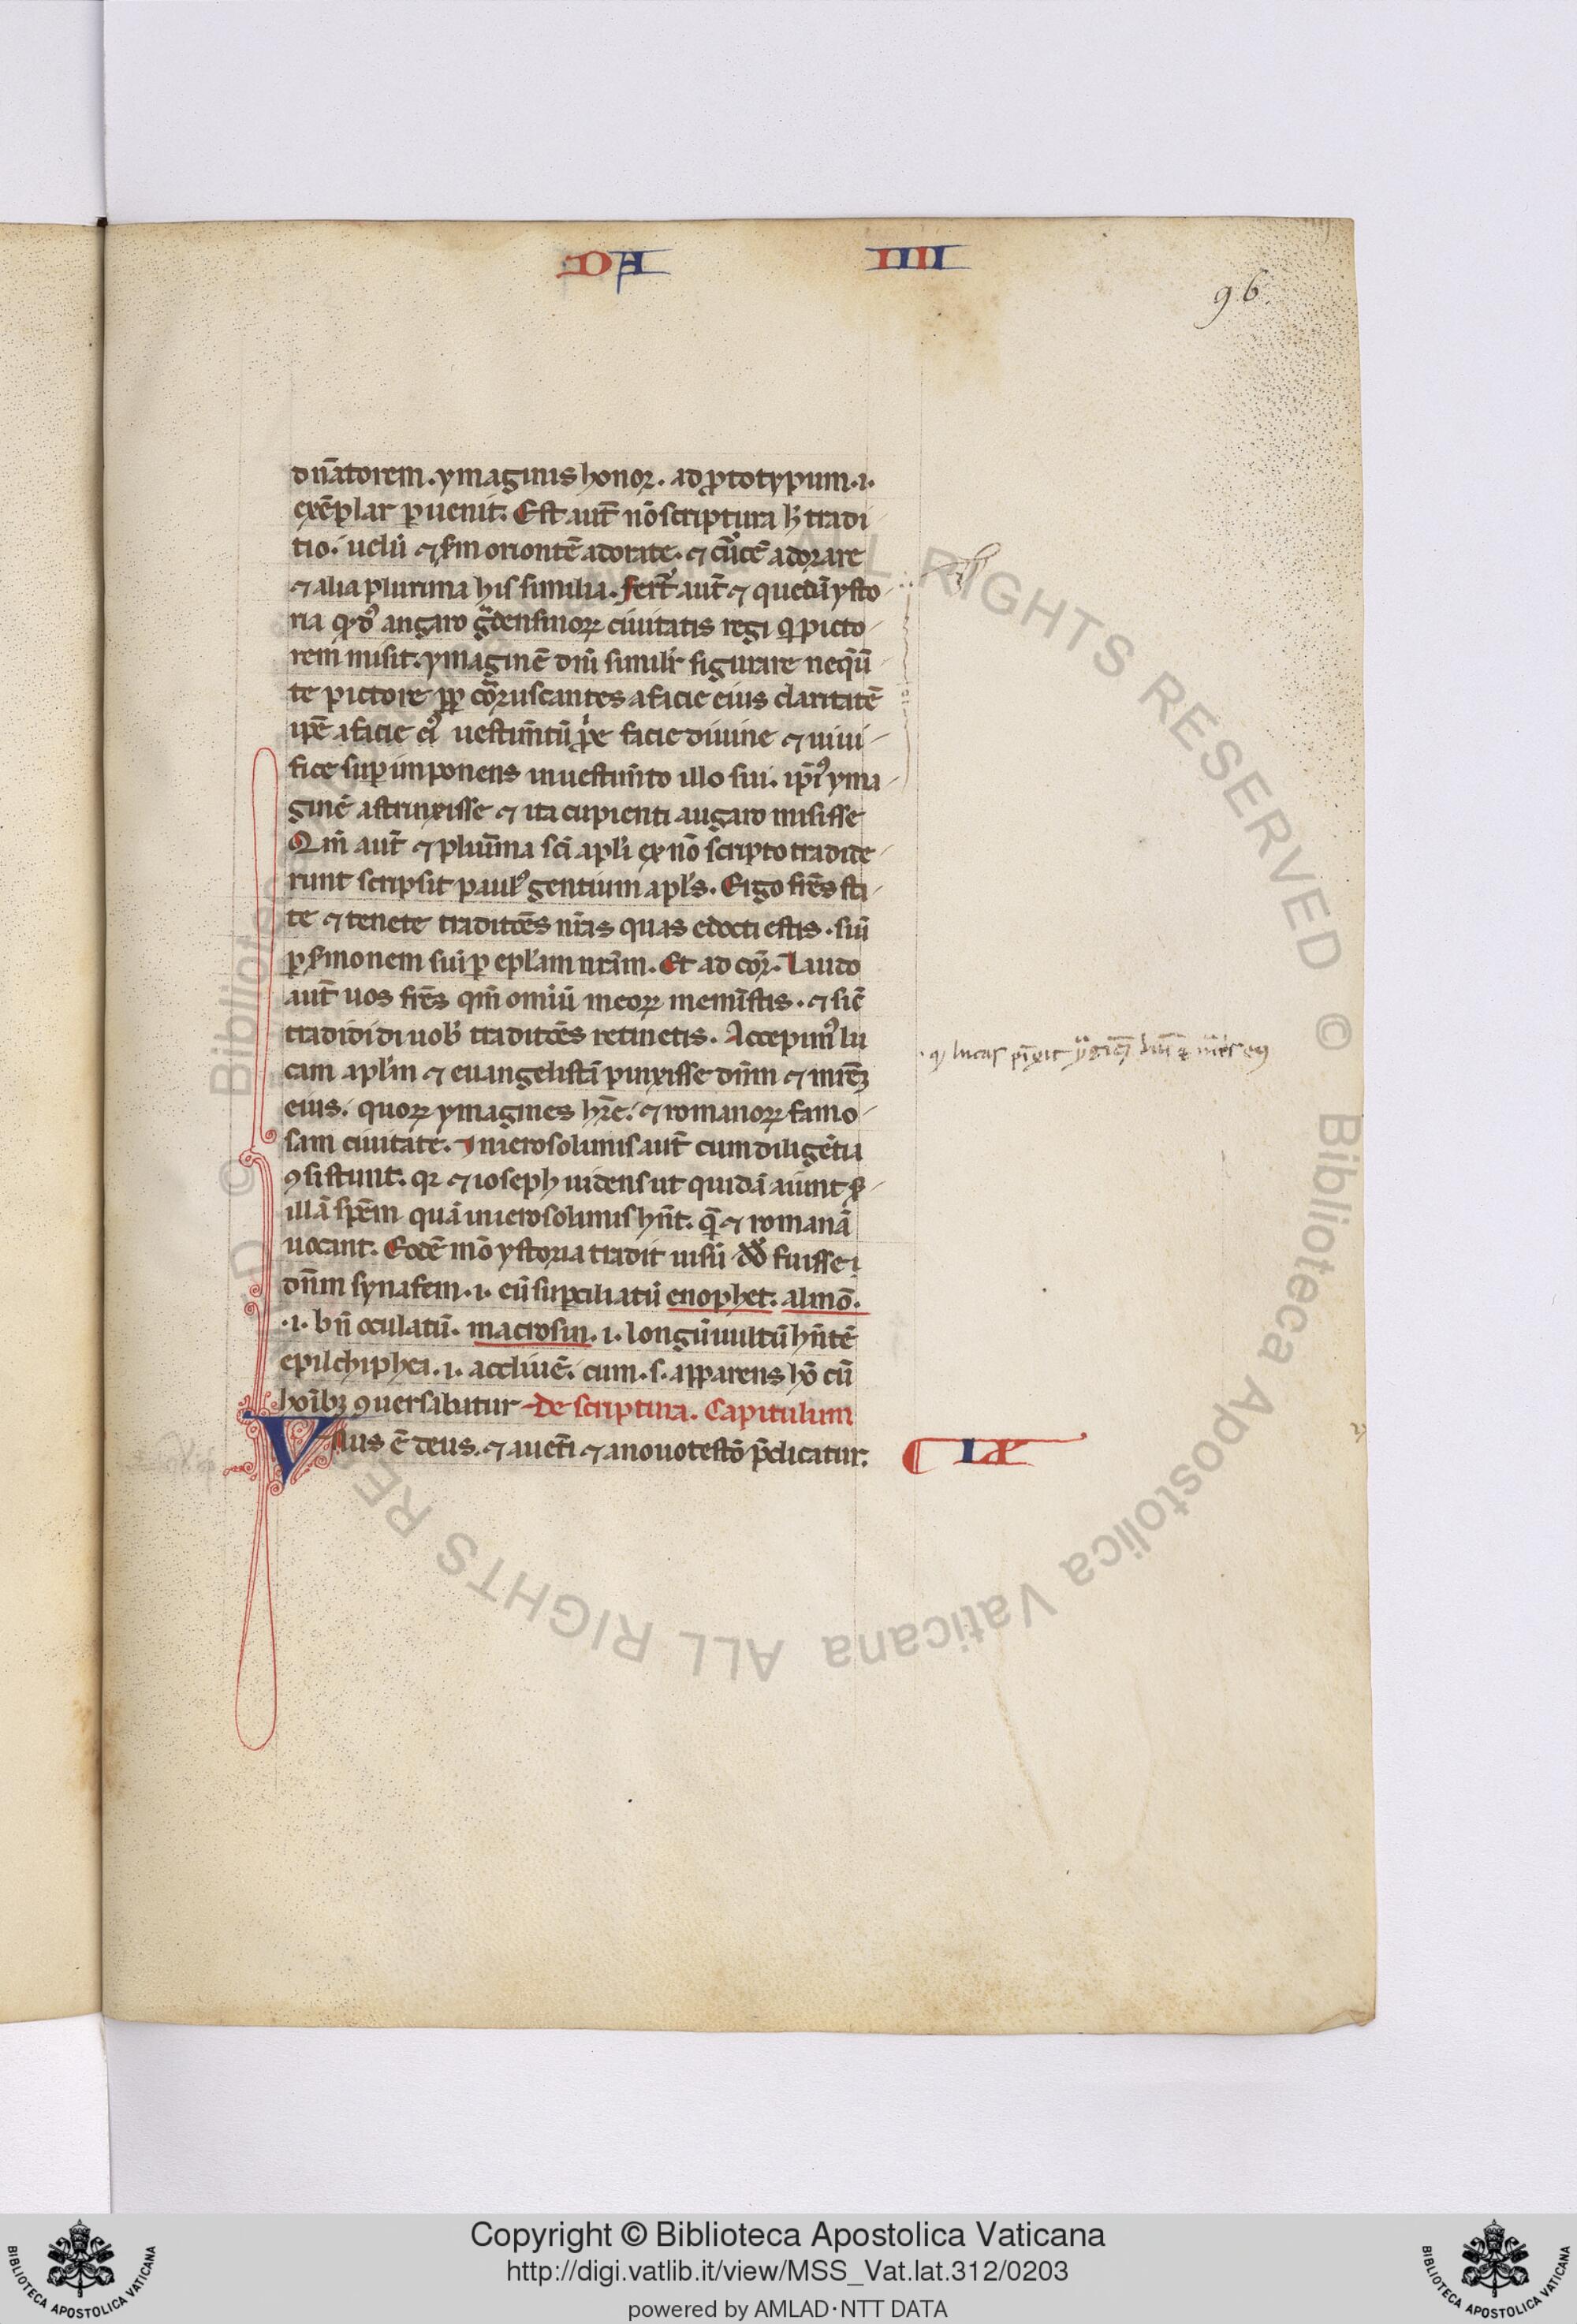 DA IIII
96
dn̄atorem. ymaginis honor. ad ꝓtotypum .i.
exēplar ꝑuenit. Est aut̄ nō scriptura hͨ tradi
tio. uelud ⁊ ẜm oriontē adorate. ⁊ crucē adorare
⁊ alia plurima his similia. Fert̉ aut̄ ⁊ quedā ysto
ria ꝙ angaro ciuitatis regi q̇ picto
rem misit. ymaginē dn̄i simil'r figurare neq̄ū
te pictore ꝓp coruscantes a facie eius claritatē
ip̄e a facie eiꝰ uestim̄tū ꝓp̄e facie diuine ⁊ uiui
fice suꝑ imponens in uestim̄to illo sui. ip̄iꝰ yma
ginē astrinxisse ⁊ ita cupienti augaro misisse
Qm̄ aut̄ ⁊ plurima sc̄i apl̄i ex nō scripto tradide
runt scripsit paulꝰ gentium apl̄s. Ergo fr̄es sta
te ⁊ tenete traditōes nr̄as quas edocti estis. siū
ꝑ ẜmonem siui ꝑ epl̄am nr̄am. Et ad cor. Laudo
aut̄ uos fr̄es qm̄ omīū meoꝝ meministis. ⁊ sic̄
tradididi uob' traditōes retinetis. Accepimꝰ lu
cam apl̄m ⁊ euangelistā pinxisse dn̄m ⁊ mr̄em
eius. quoꝝ ymagines hr̄e. ⁊ romanoꝝ famo
sam ciuitate. Inierosolimis aut̄ cum diligētia
ꝯsistunt. ⁊ ioseph uidens ut quidā aiunt ẜ
illā sp̄em quā inierosolimis hn̄t. q̄ ⁊ romanā
uocant. Eodē mō ystoria tradit uisū fuisse
dn̄m synafem .i. eū suꝑciliatū enophet. almō.
.i. bn̄ oculatū. macrosin .i. longū uultū hn̄tē
epilchiphei .i. accliuē. cum .s. apparens hō cū
hoībꝫ ꝯuersabatur De scriptura. Capitulum
Vnus ē deus. ⁊ a uet̄i ⁊ a nouo testō p̄dicatur.
LX
ꝙ lucas pīxit dn̄i ⁊ mr̄is eiꝰ
Copyright © Biblioteca Apostolica Vaticana
http://digi.vatlib.it/view/MSS_Vat.lat.312/0203
powered by AMLAD·NTT DATA
BIBLIOTECA APOSTOLICA VATICANA
BIBLIOTECA APOSTOLICA VATICANA
© Biblioteca Apostolica Vaticana ALL RIGHTS RESERVED